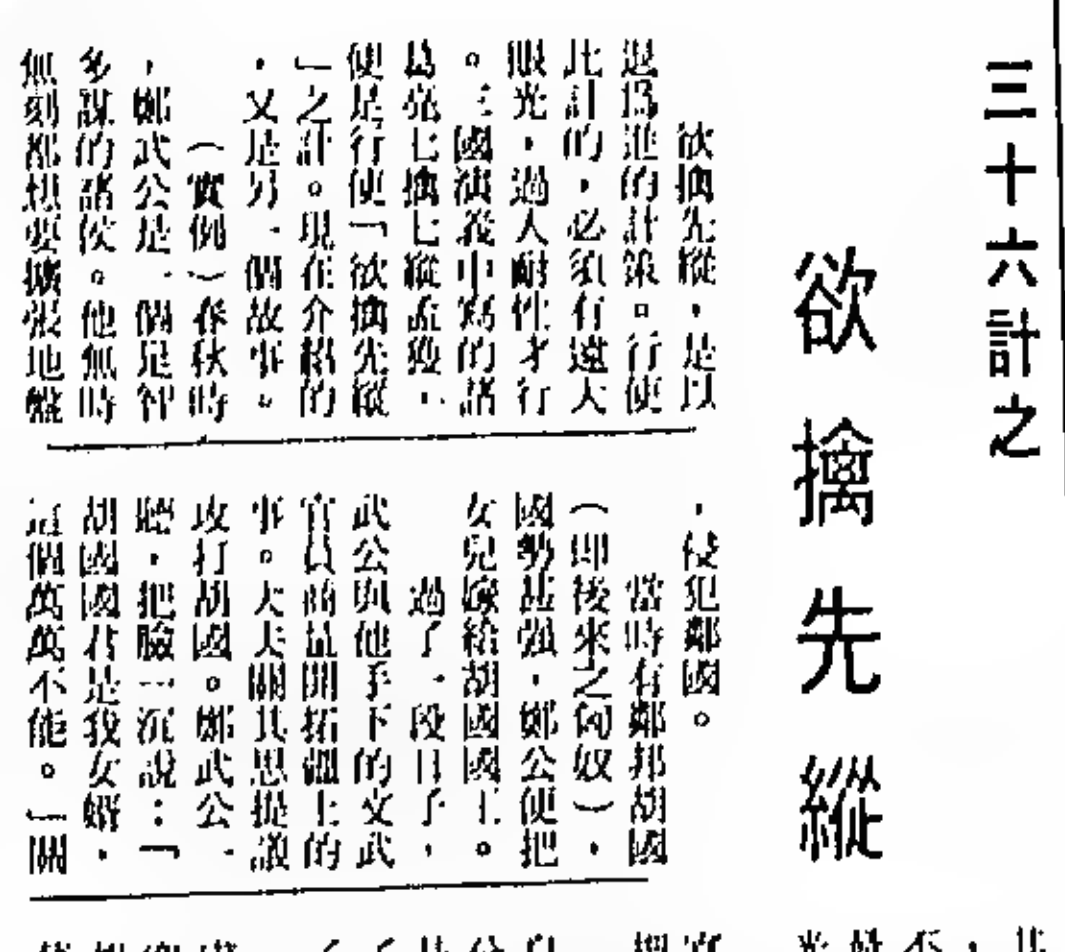 三十六計之
欲擒先縱
欲擒先縱，是以
退爲進的計策。行使
此計的，必須有遠大
眼光，過人耐性才行
。三國演義中寫的諸
葛亮七擒七縱孟獲，
便是行使「欲擒先縱
」之計。現在介紹的
，又是另一個故事。
（實例）春秋時
，鄭武公是一個足智
多謀的諸侯。他無時
無刻都想要擴張地盤
，侵犯鄰國。
當時有鄰邦胡國
（即後來之匈奴），
國勢甚強，鄭公便把
女兒嫁給胡國國王。
過了一段日子，
武公與他手下的文武
官員商量開拓疆土的
事。大夫關其思提議
攻打胡國。鄭武公一
聽，把臉一沉說：「
胡國國君是我女婿，
這個萬萬不能。」關